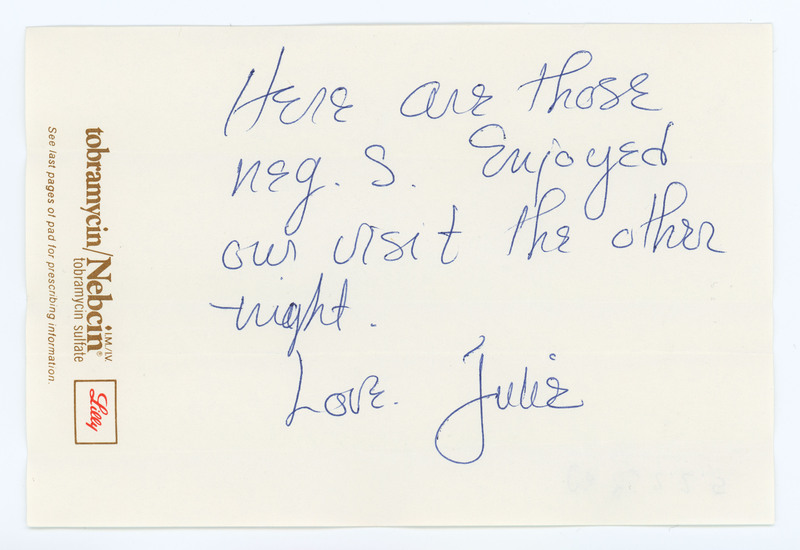 Here are those
neg. s. Enjoyed
our visit the other
night.
Love. Julie
tobramycin/Nebcin® I.M./I.V.
tobramycin sulfate
See last pages of pad for prescribing information.
Lilly